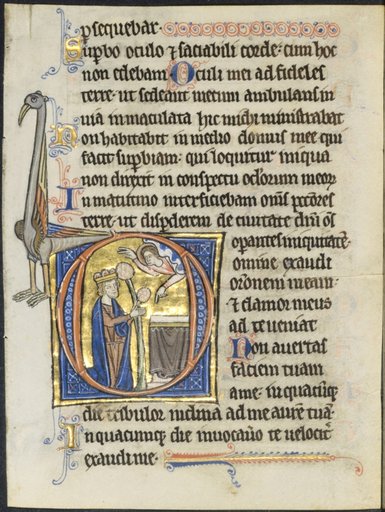 psequebar.
Supbo oculo ⁊ saciabili corde: cum hoc
non edebam. Oculi mei ad fideles
terre: ut sedeant mecum ambulans in
uia inmaculata hic michi ministrabat
Non habitabit in medio domus mee qui
facit supbiam: qui loquitur iniqua
non direxit in conspectu oculorum meorum
In matutino interficiebam oms peccores
terre: ut disperderem de ciuitate dni os
operantes iniquitatem.
Domine exaudi
oronem meam:
⁊ clamor meus
ad te ueniat
Non auertas
faciem tuam
a me: in quacunque
die tribulor inclina ad me aurem tuam
In quacumque die inuocauero te uelociter
exaudi me.